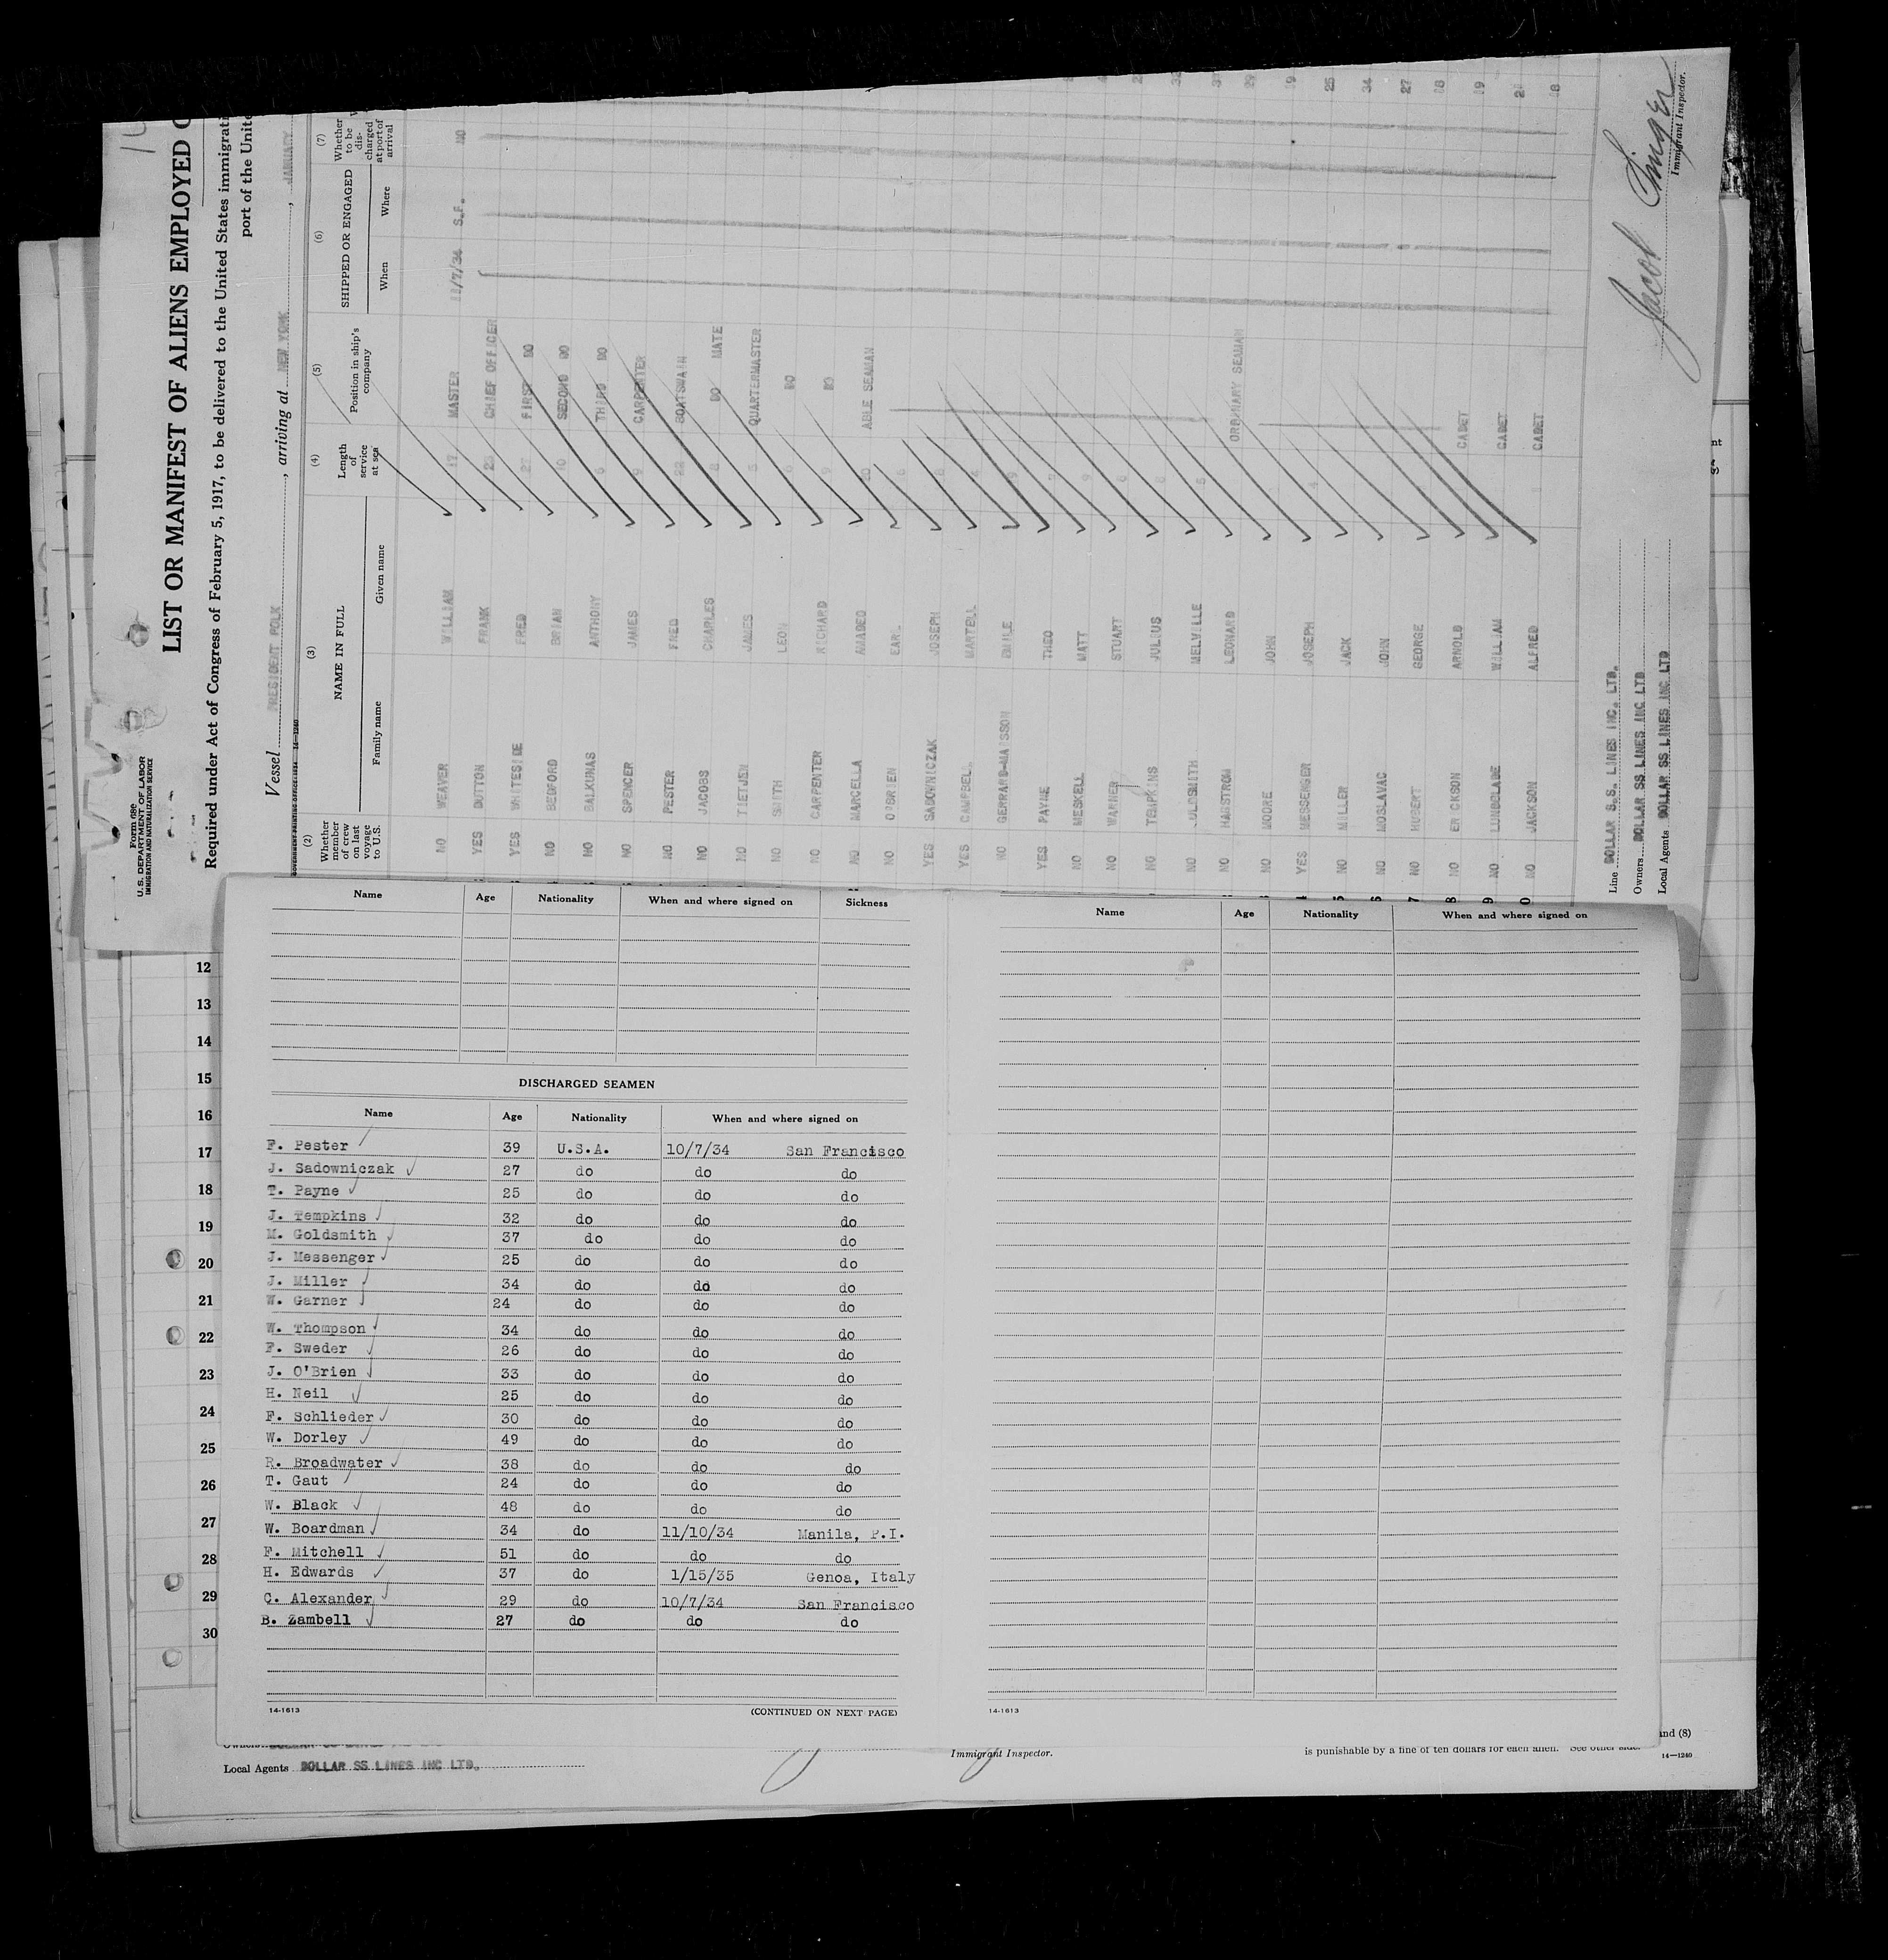 LIST OR MANIFEST OF ALIENS EMPLOYED
Form 680
U.S. DEPARTMENT OF LABOR
IMMIGRATION AND NATURALIZATION SERVICE
Required under Act of Congress of February 5, 1917, to be delivered to the United States immigrati
port of the Unite
Vessel PRESIDENT POLK, arriving at NEW YORK, JANUARY
(2) (3) (4) (5) (6) (7)
Whether member of crew on last voyage to U.S. NAME IN FULL Length of service at sea Position in ship's company SHIPPED OR ENGAGED Whether to be discharged at port of arrival
Family name Given name When Where
NO WEAVER WILLIAM 17 MASTER /7/34 S.F. NO
YES DUTTON FRANK 25 CHIEF OFFICER
YES WHITESIDE FRED 27 FIRST DO
NO BEDFORD BRIAN 10 SECOND DO
NO BALKUNAS ANTHONY 6 THIRD DO
NO SPENCER JAMES 9 CARPENTER
NO PESTER FRED 22 BOATSWAIN
NO JACOBS CHARLES 8 DO MATE
NO TIETJEN JAMES QUARTERMASTER
NO SMITH LEON DO
NO CARPENTER RICHARD 9 DO
NO MARCELLA AMADEO ABLE SEAMAN
NO O'BRIEN EARL
YES SADOWNICZAK JOSEPH
YES CAMPBELL MARTELL
NO GERRARD-MAISSON EMILE 9
YES PAYNE THEO
NO MESKELL MATT 9
NO WARNER STUART
NO TEMPKINS JULIUS
NO GOLDSMITH MELVILLE
NO HAGSTROM LEONARD ORDINARY SEAMAN
NO MOORE JOHN
YES MESSENGER JOSEPH 4
NO MILLER JACK
NO MOSLAVAC JOHN
NO HUBERT GEORGE
NO ERICKSON ARNOLD CADET
NO LUNDGLADE WILLIAM CADET
NO JACKSON ALFRED CADET
Line DOLLAR S.S. LINES INC. LTD.
Owners DOLLAR SS LINES INC LTD
Local Agents DOLLAR SS LINES INC LTD
Jacob Singer
Immigrant Inspector.
Name Age Nationality When and where signed on Sickness
DISCHARGED SEAMEN
Name Age Nationality When and where signed on
F. Pester 39 U.S.A. 10/7/34 San Francisco
J. Sadowniczak 27 do do do
T. Payne 25 do do do
J. Tempkins 32 do do do
M. Goldsmith 37 do do do
J. Messenger 25 do do do
J. Miller 34 do do do
W. Garner 24 do do do
W. Thompson 34 do do do
F. Sweder 26 do do do
J. O'Brien 33 do do do
H. Neil 25 do do do
F. Schlieder 30 do do do
W. Dorley 49 do do do
R. Broadwater 38 do do do
T. Gaut 24 do do do
W. Black 48 do do do
W. Boardman 34 do 11/10/34 Manila, P.I.
F. Mitchell 51 do do do
H. Edwards 37 do 1/15/35 Genoa, Italy
C. Alexander 29 do 10/7/34 San Francisco
B. Zambell 27 do do do
14-1613 (CONTINUED ON NEXT PAGE)
Name Age Nationality When and where signed on
14-1613
12
13
14
15
16
17
18
19
20
21
22
23
24
25
26
27
28
29
30
Local Agents DOLLAR SS LINES INC LTD.
Immigrant Inspector.
and (8)
is punishable by a fine of ten dollars for each alien. See other side.
14—1240